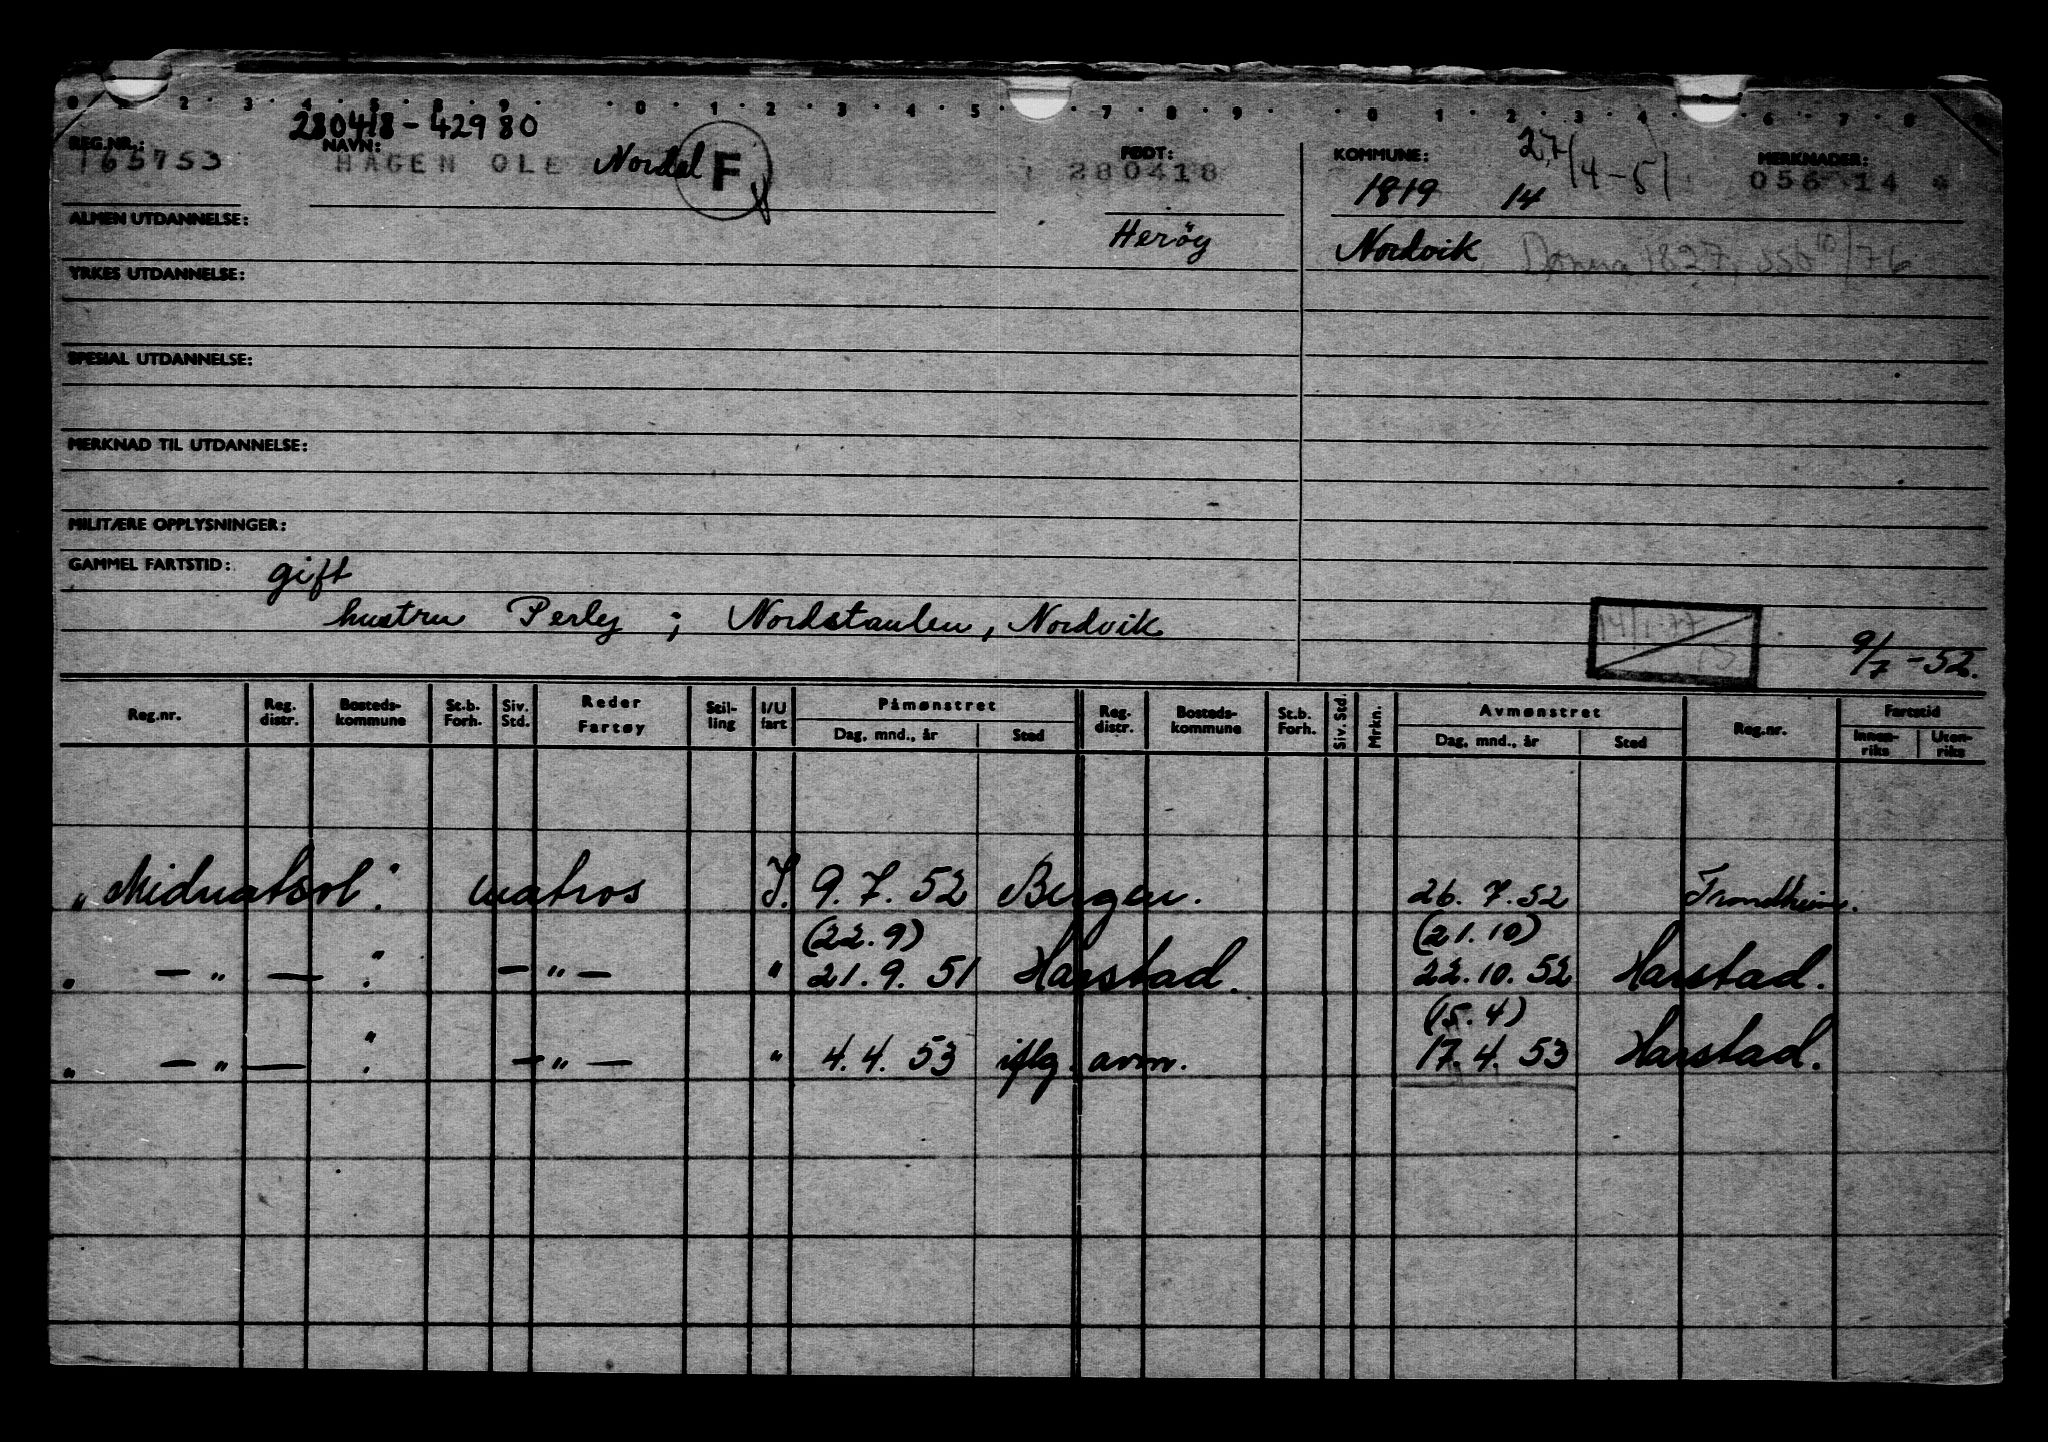 0 1 2 · 3 · 4 · 5 · 8 · 9 · · 0 · 1 · 2 · 3 · 4 · 5 · · 7 · 8 · 9 · · 0 · 1 · 2 · 3 · 4 · 6 · 7 · 8
280418 - 42980
REG.NR.: NAVN: FØDT: KOMMUNE: 27/4-51 MERKNADER:
165753 HAGEN OLE Nordal F 280418 1819 14 056 14 *
ALMEN UTDANNELSE: Herøy Nordvik Dønna 1827, ssb 10/76
YRKES UTDANNELSE:
SPESIAL UTDANNELSE:
MERKNAD TIL UTDANNELSE:
MILITÆRE OPPLYSNINGER:
GAMMEL FARTSTID: gift
hustru Perley ; Nordstaulen, Nordvik 14/1-77
9/7 - 52.
Reg.nr. Reg. distr. Bosteds-kommune St.b. Forh. Siv. Std. Reder Fartøy Stil-ling I/U fart Påmønstret Dag, mnd., år Sted Reg. distr. Bosteds-kommune St.b. Forh. Siv. Std. Mrkn. Avmønstret Dag, mnd., år Sted Reg.nr. Fartstid Innen-riks Uten-riks
"Midnatsol". matros I. 9. 7. 52 Bergen. 26. 7. 52 Trondheim.
(22. 9) (21. 10)
" — " — ". — " — " 21. 9. 51 Harstad. 22. 10. 52 Harstad.
(15. 4)
" — " — ". — " — " 4. 4. 53 iflg. avm. 17. 4. 53 Harstad.